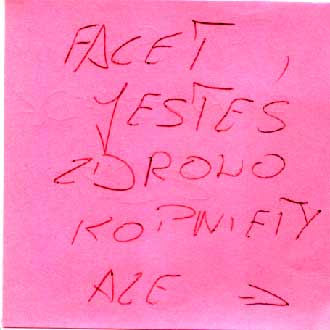 FACET,
JESTEŚ
ZDROWO
KOPNIĘTY
ALE →